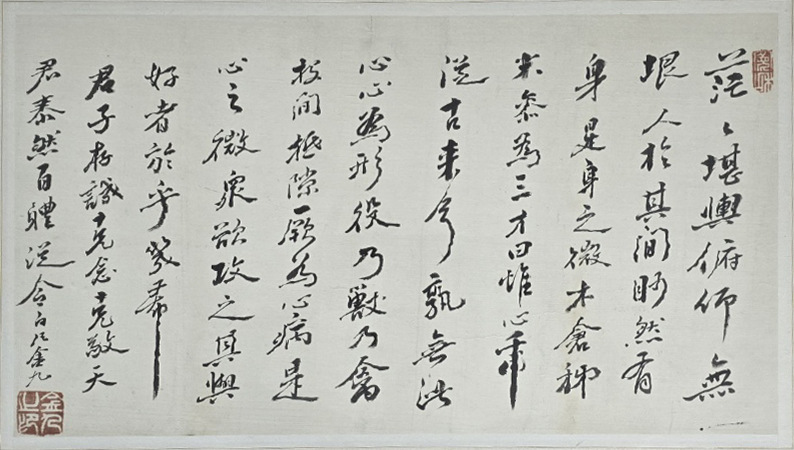 茫〻堪輿俯仰無
垠人於其間眇然有
身是身之微太倉稊
米參為三才曰惟心耳
從古來今孰無此
心心為形役乃獸乃禽
投間抵隙厥為心病是
心之微衆欲攻之其與
好者於乎幾希
君子存誠克念克敬天
君泰然百體從令白凡金九
金九之印